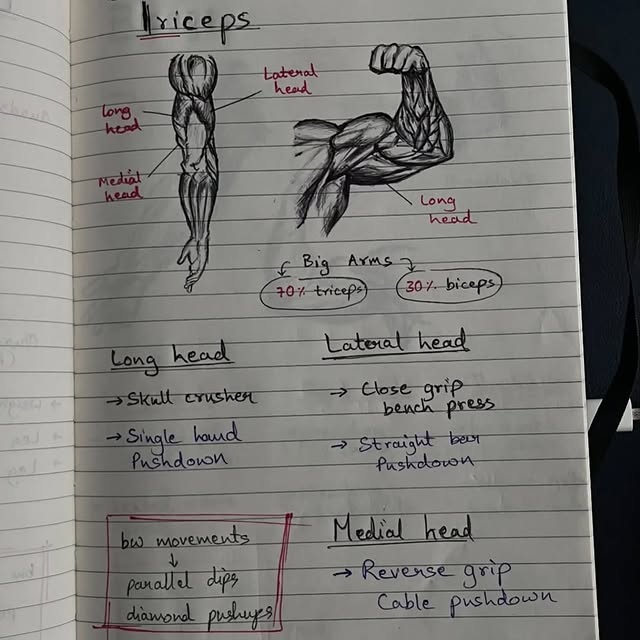 Triceps
Lateral
head
Long
head
Medial
head
Long
head
Big Arms
70% triceps
30% biceps
Long head
→ Skull crusher
→ Single hand
Pushdown
Lateral head
→ Close grip
bench press
→ Straight bar
Pushdown
bw movements
↓
parallel dips
diamond pushups
Medial head
→ Reverse grip
Cable pushdown